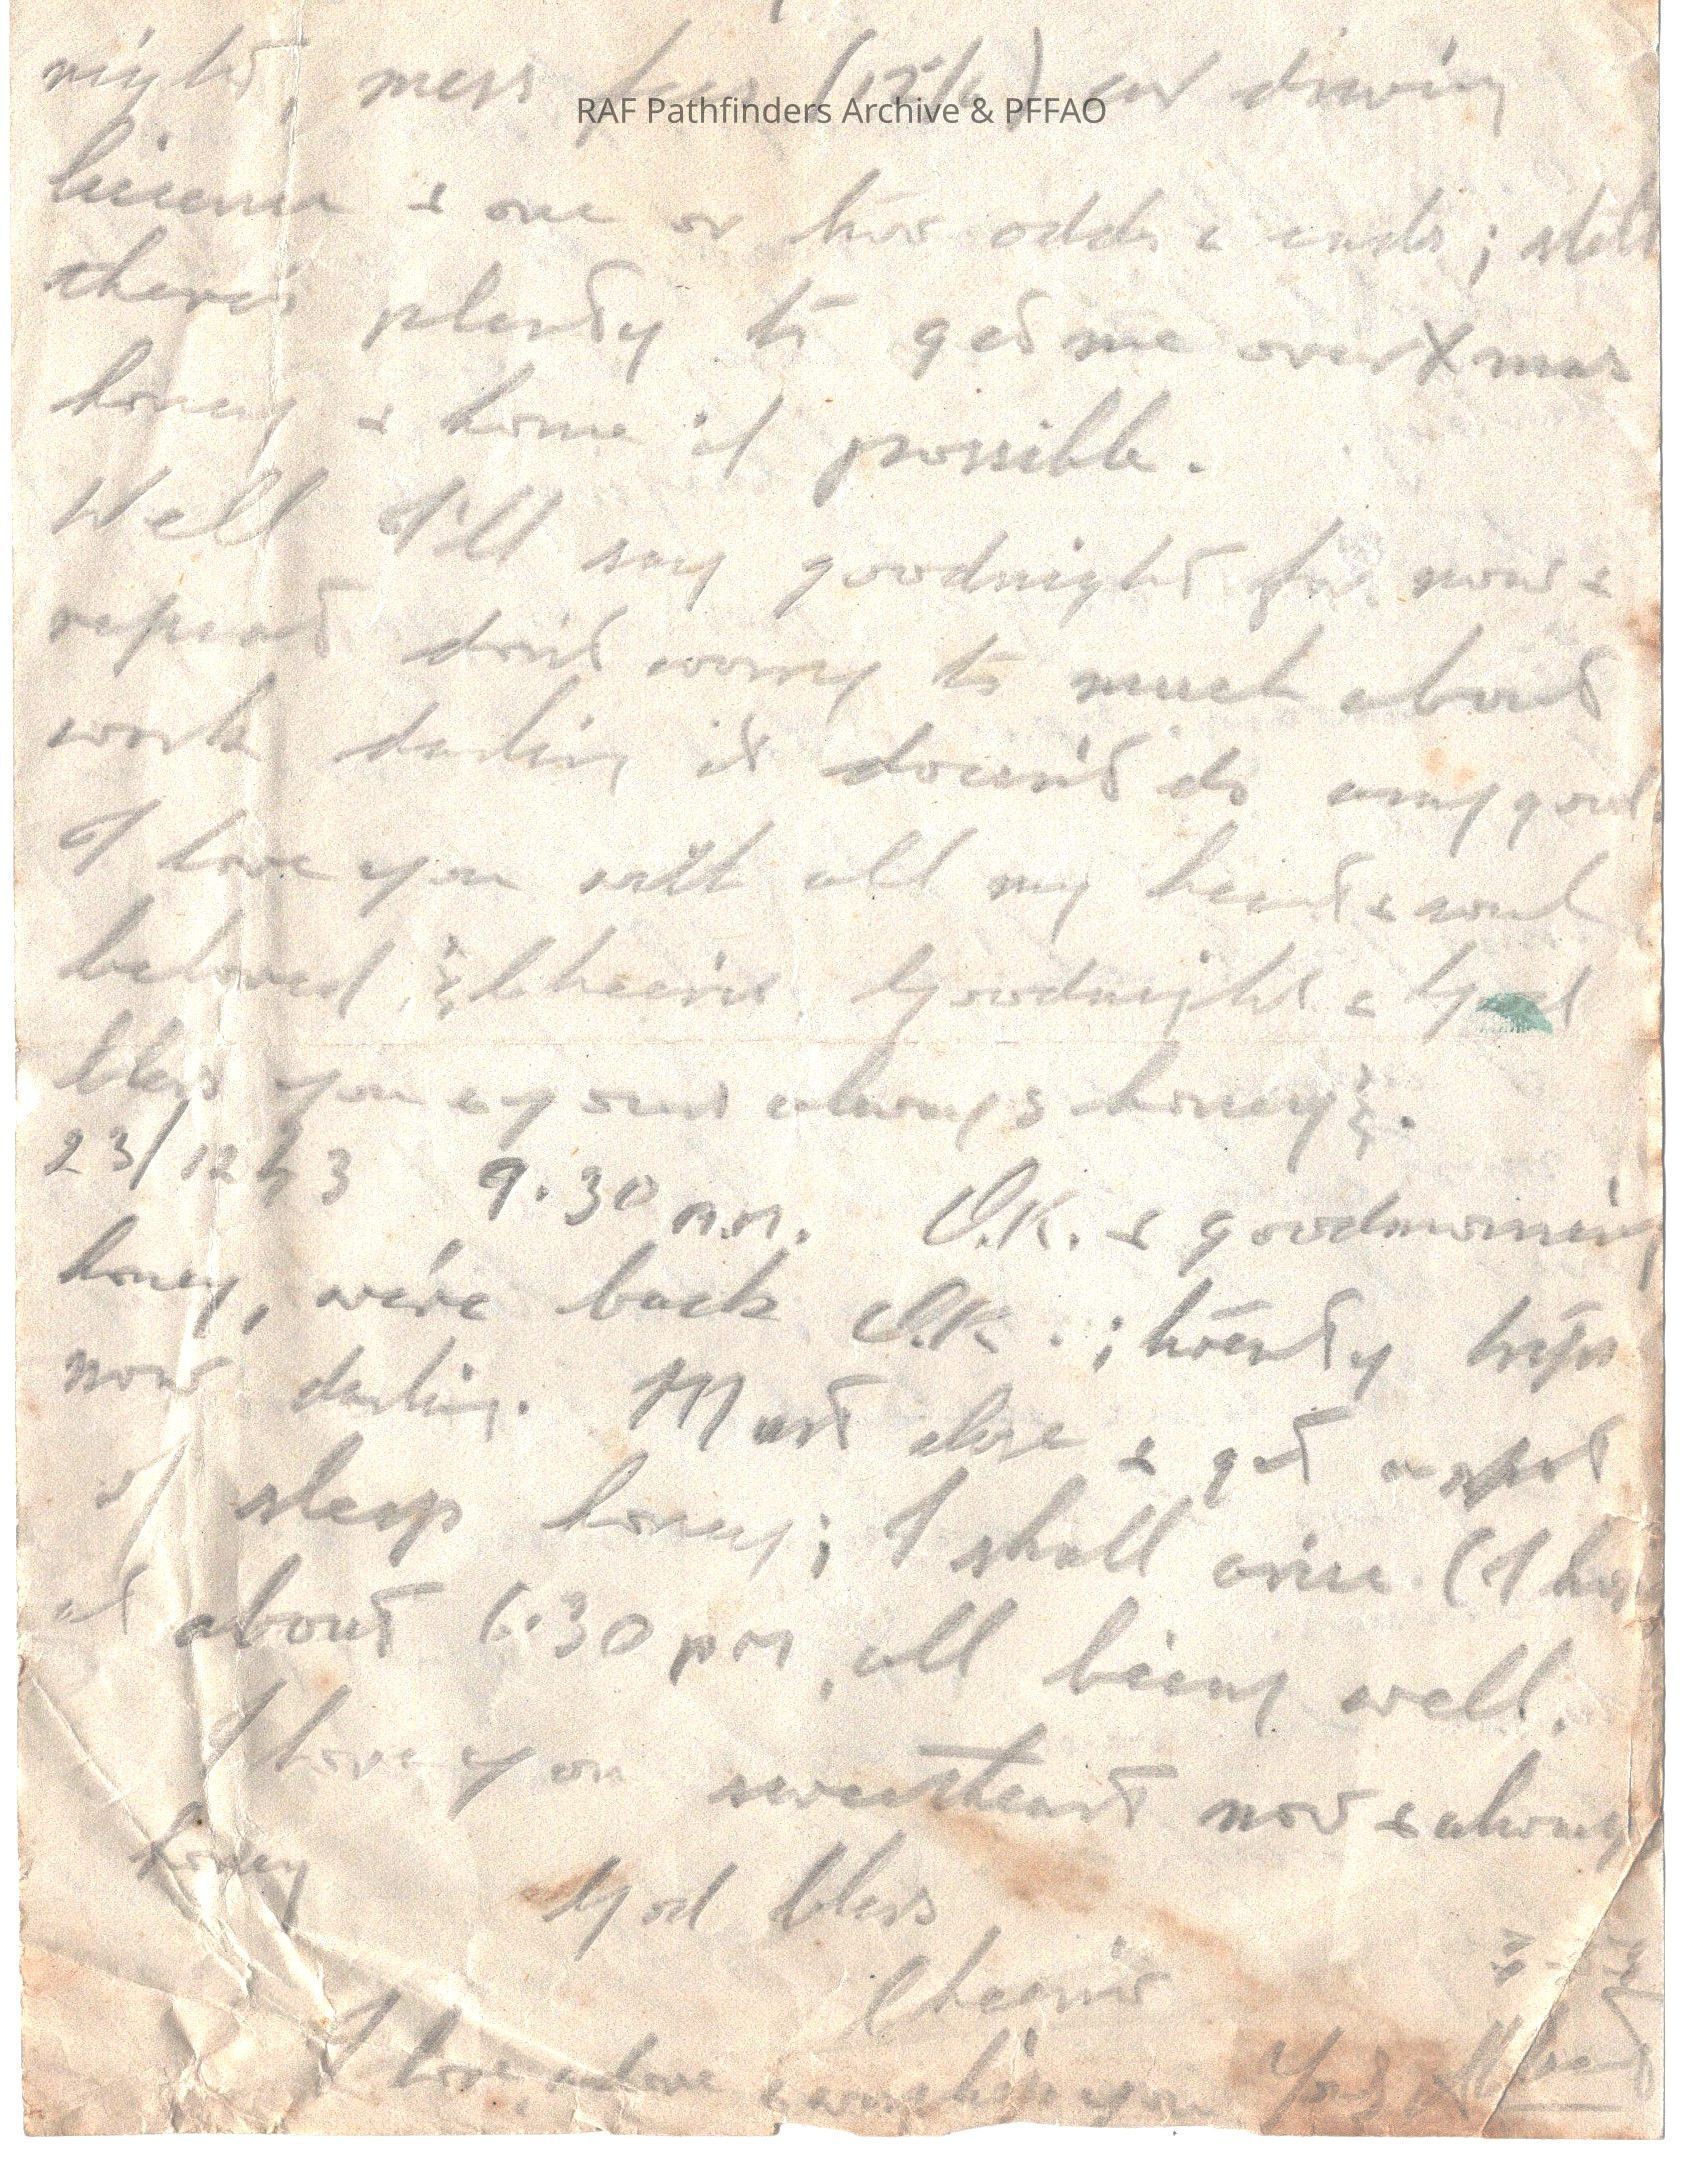 night, mess fees (12/6) car driving
RAF Pathfinders Archive & PFFAO
licence & one or two odds & ends; still
there's plenty to get me over Xmas
honey & home if possible.
Well I'll say goodnight for now &
repeat don't worry to much about
work darling it doesn't do any good.
I love you with all my heart & soul
beloved, cheerio Goodnight & God
bless you & yours always honey.
23/12/43 9.30 am. O.K. & goodmorning
honey, we're back O.K.; twenty trips
now darling. Must close & get a spot
of sleep honey; I shall arise (I hope
at about 6.30 pm, all being well.
I love you sweetheart now & always
honey
God bless
Cheerio
I love adore & worship you Yours